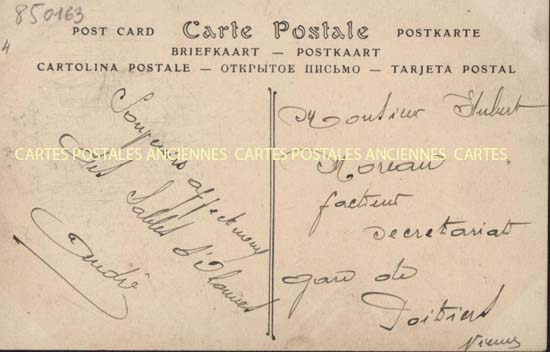 850163
4
Carte Postale
POST CARD
POSTKARTE
BRIEFKAART — POSTKAART
CARTOLINA POSTALE — ОТКРЫТОЕ ПИСЬМО — TARJETA POSTAL
Souvenirs affectueux
des Sables d'Olonnes
André
CARTES POSTALES ANCIENNES CARTES POSTALES ANCIENNES CARTES
Monsieur Hubert
Moreau
facteur
secretariat
gare de
Poitiers
Vienne